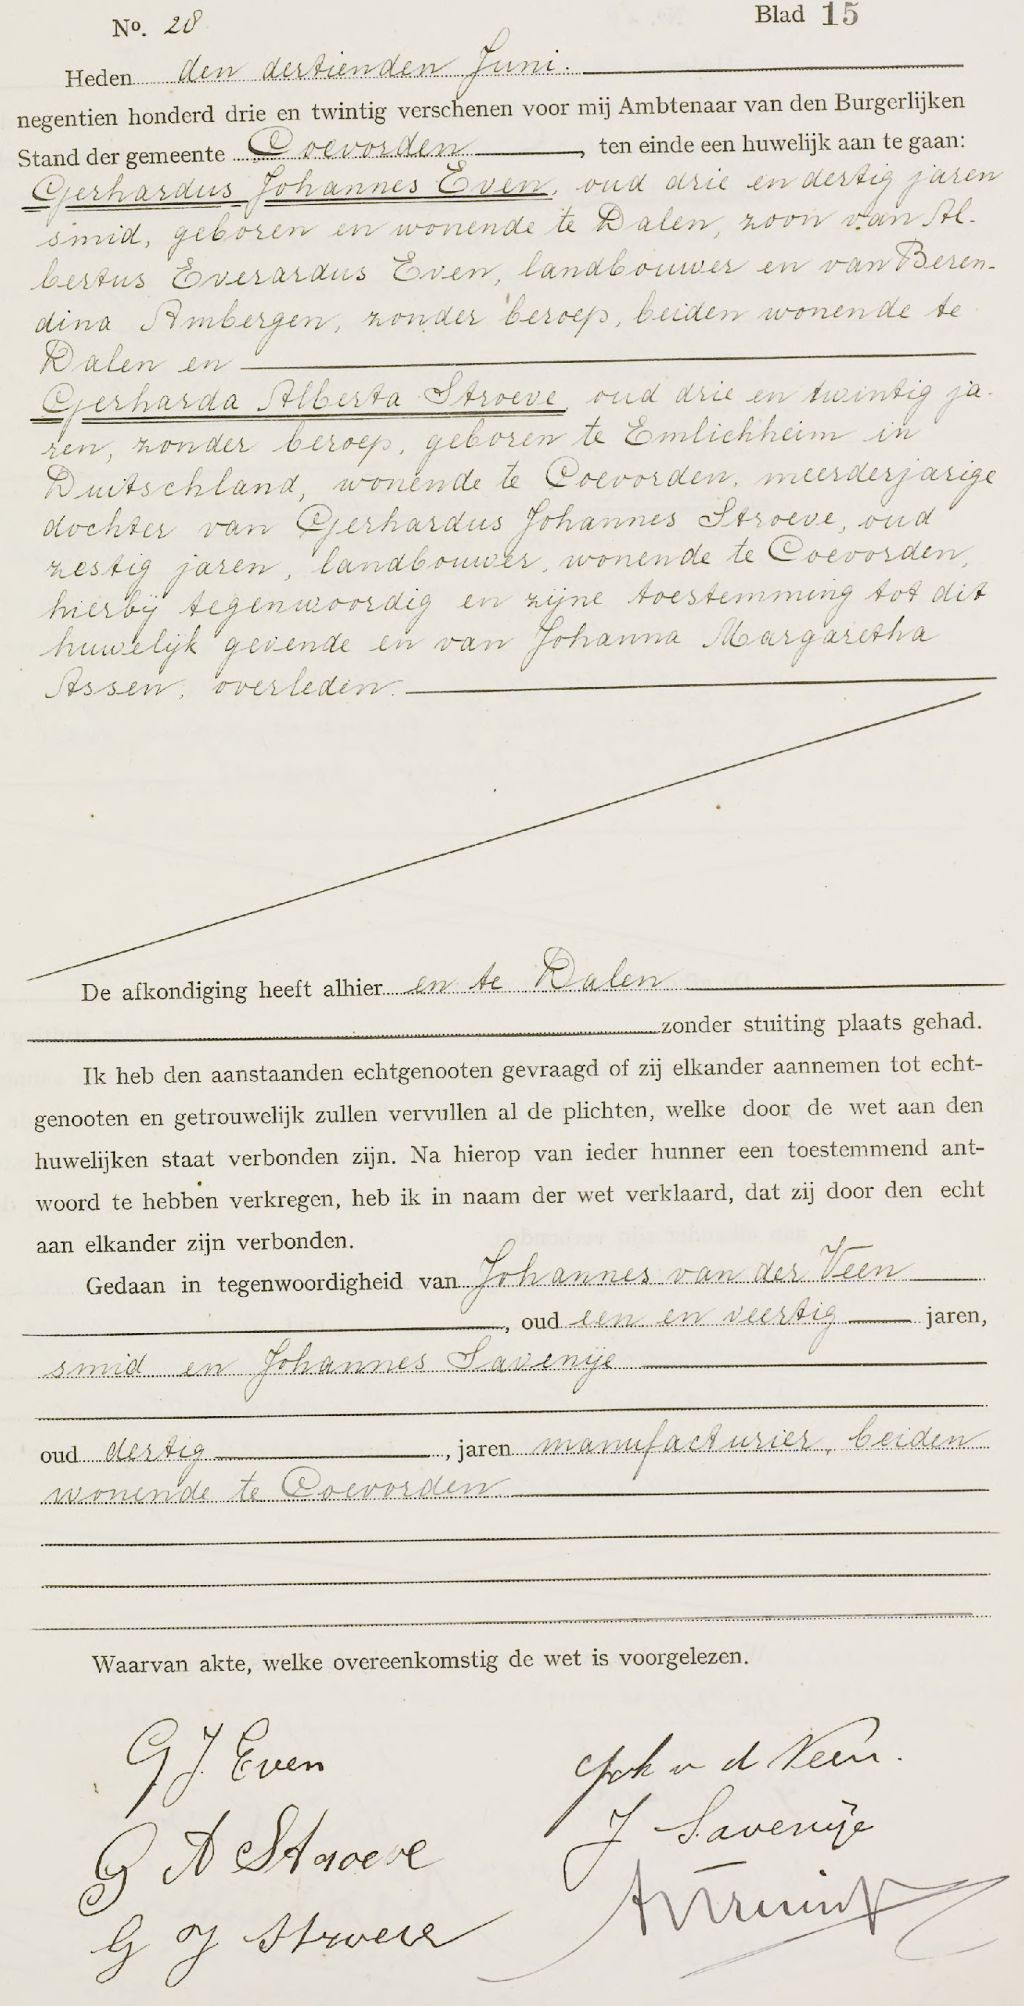 No. 28
Blad 15
Heden den dertienden Juni.
negentien honderd drie en twintig verschenen voor mij Ambtenaar van den Burgerlijken
Stand der gemeente Coevorden, ten einde een huwelijk aan te gaan:
Gerhardus Johannes Even, oud drie en dertig jaren
smid, geboren en wonende te Dalen, zoon van Al-
bertus Everardus Even, landbouwer en van Beren-
dina Ambergen, zonder beroep, beiden wonende te
Dalen en
Gerharda Alberta Stroeve, oud drie en twintig ja-
ren, zonder beroep, geboren te Emlichheim in
Duitschland, wonende te Coevorden, meerderjarige
dochter van Gerhardus Johannes Stroeve, oud
zestig jaren, landbouwer, wonende te Coevorden,
hierbij tegenwoordig en zijne toestemming tot dit
huwelijk gevende en van Johanna Margaretha
Assen, overleden.
De afkondiging heeft alhier en te Dalen
zonder stuiting plaats gehad.
Ik heb den aanstaanden echtgenooten gevraagd of zij elkander aannemen tot echt-
genooten en getrouwelijk zullen vervullen al de plichten, welke door de wet aan den
huwelijken staat verbonden zijn. Na hierop van ieder hunner een toestemmend ant-
woord te hebben verkregen, heb ik in naam der wet verklaard, dat zij door den echt
aan elkander zijn verbonden.
Gedaan in tegenwoordigheid van Johannes van der Veen
, oud een en veertig jaren,
smid en Johannes Savenije
oud dertig, jaren manufacturier, beiden
wonende te Coevorden
Waarvan akte, welke overeenkomstig de wet is voorgelezen.
G J. Even
Joh v d Veen.
G A Stroeve
J Savenije
G J Stroeve